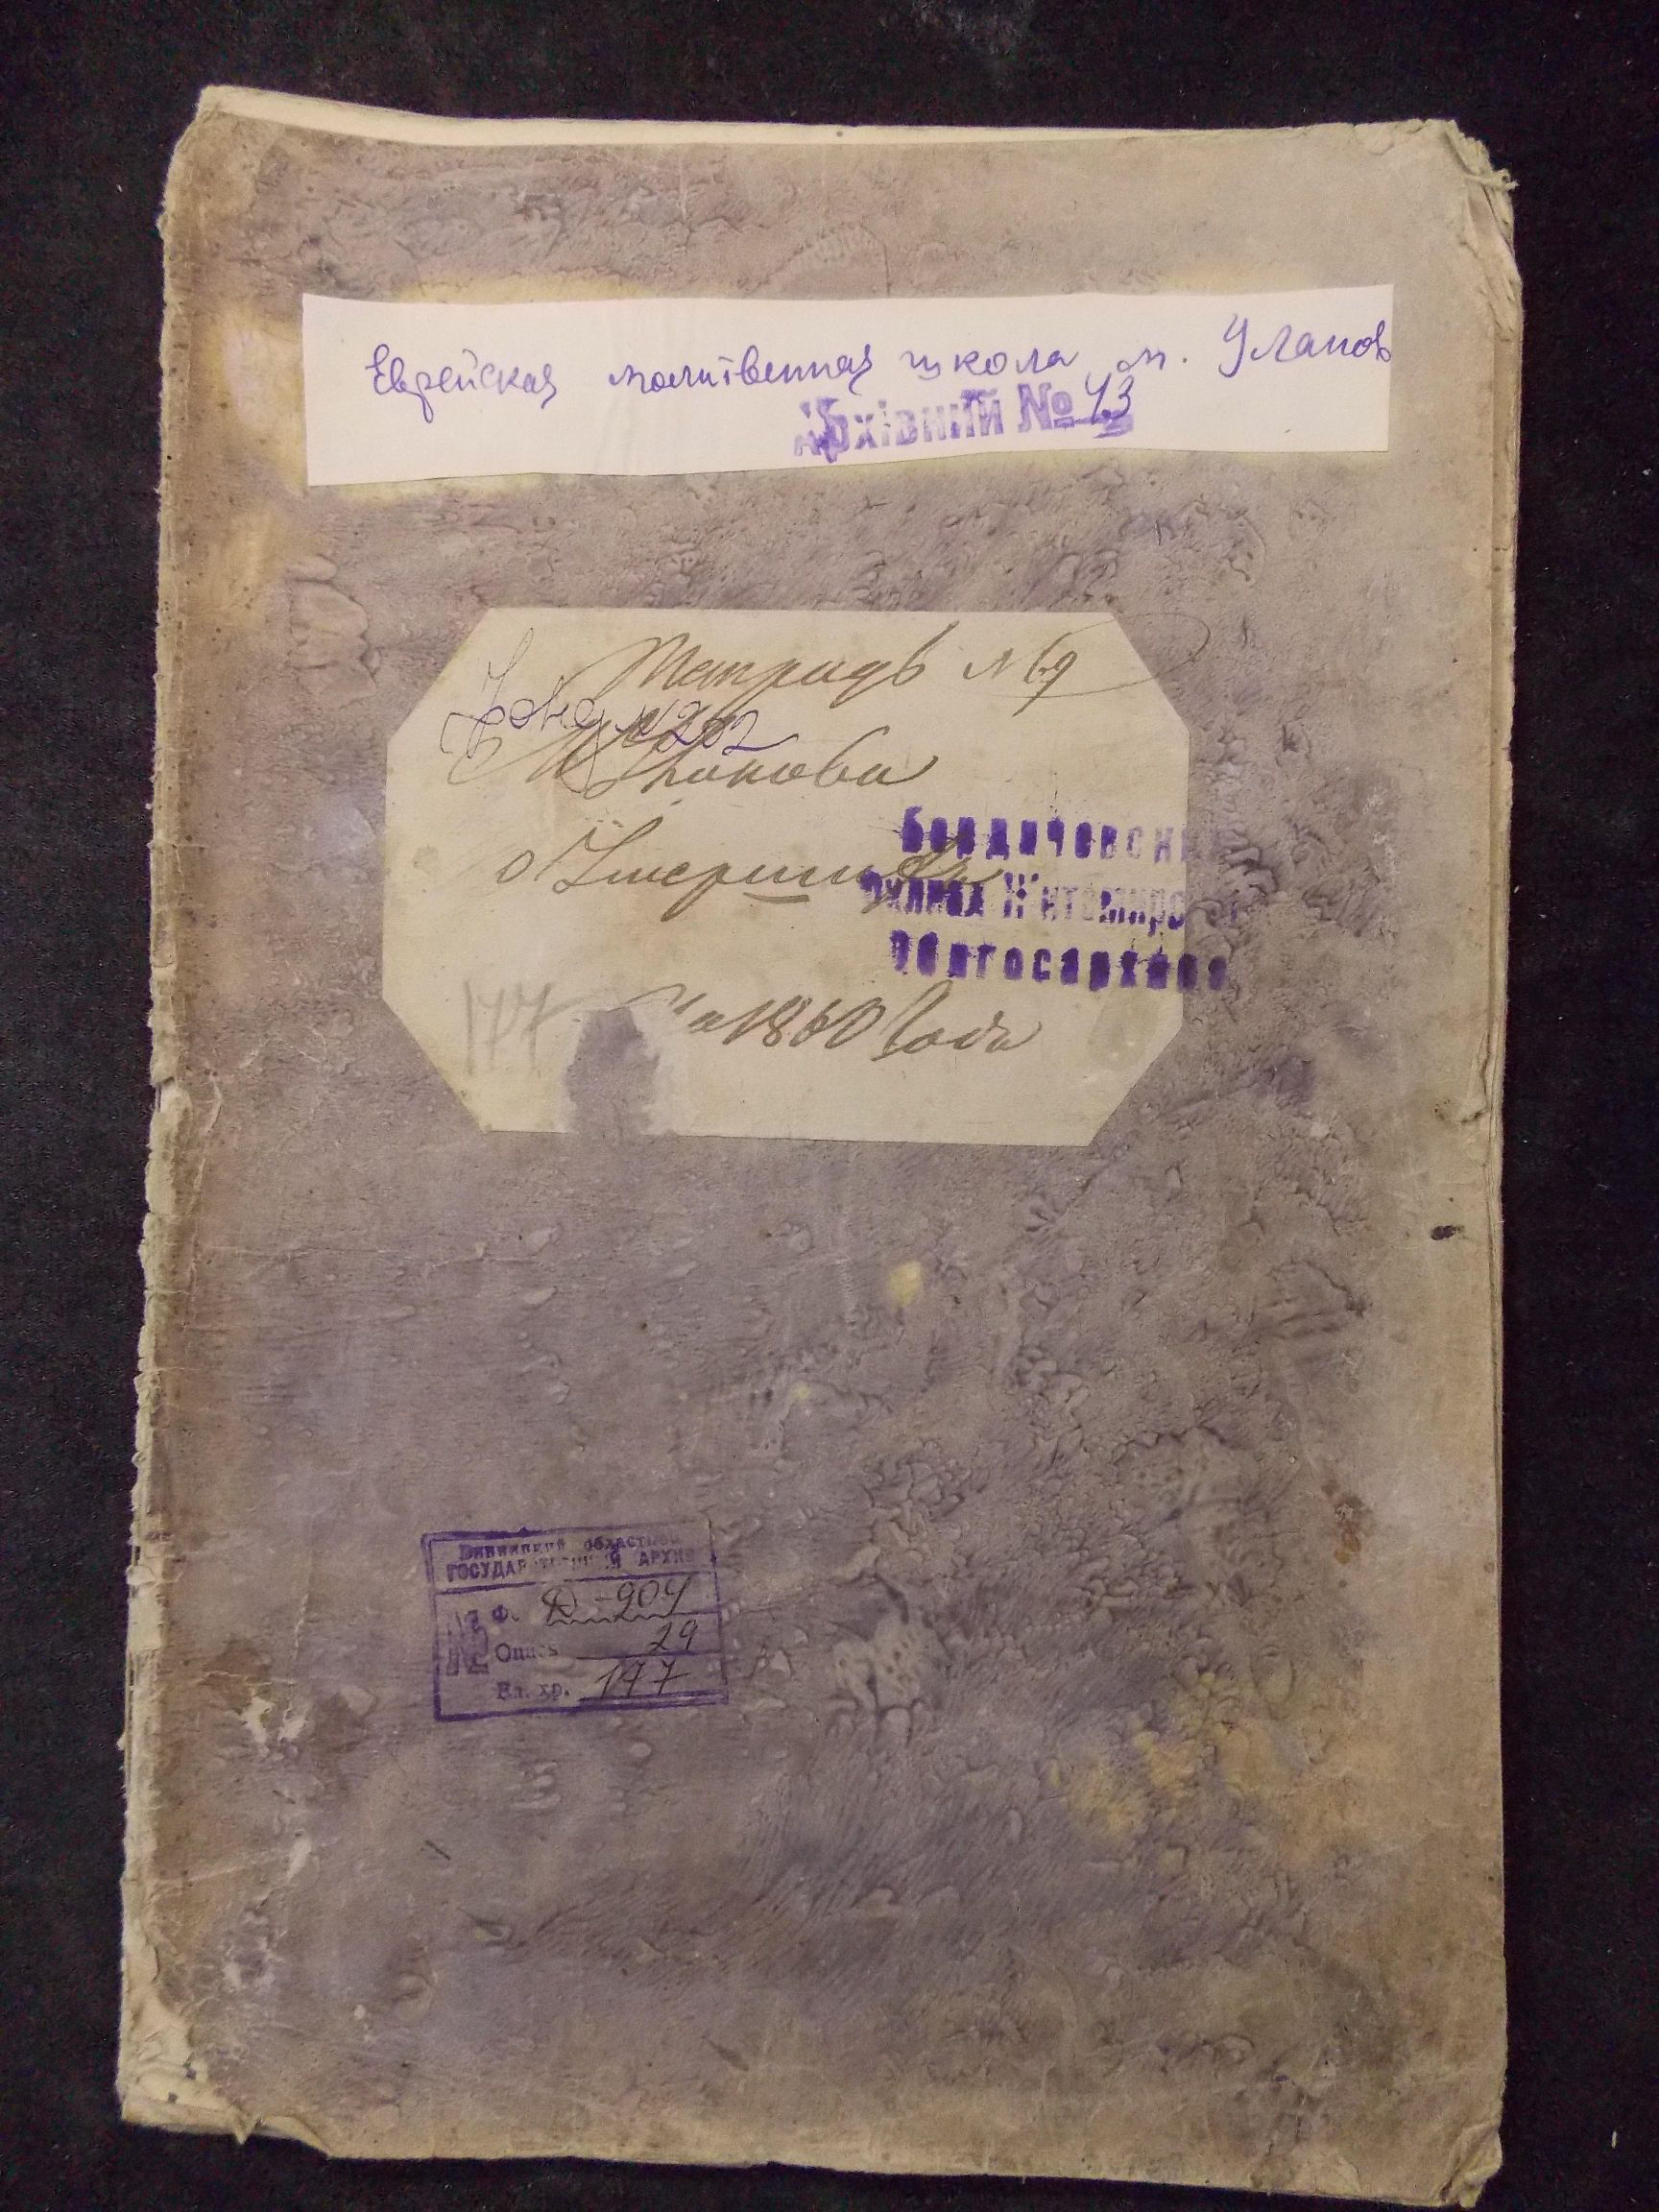 Еврейская молитвенная школа м. Уланов
Архівний № 43
Тетрадь № 9
Фонд № 202
М Уланова
о Умерших
Бердичовски
Филиал Житомирс
Облгосархива
177 На 1860 Года
Винницкий областной
ГОСУДАРСТВЕННЫЙ АРХИВ
№
Ф. Д-904
Опись 29
Ед. хр. 177